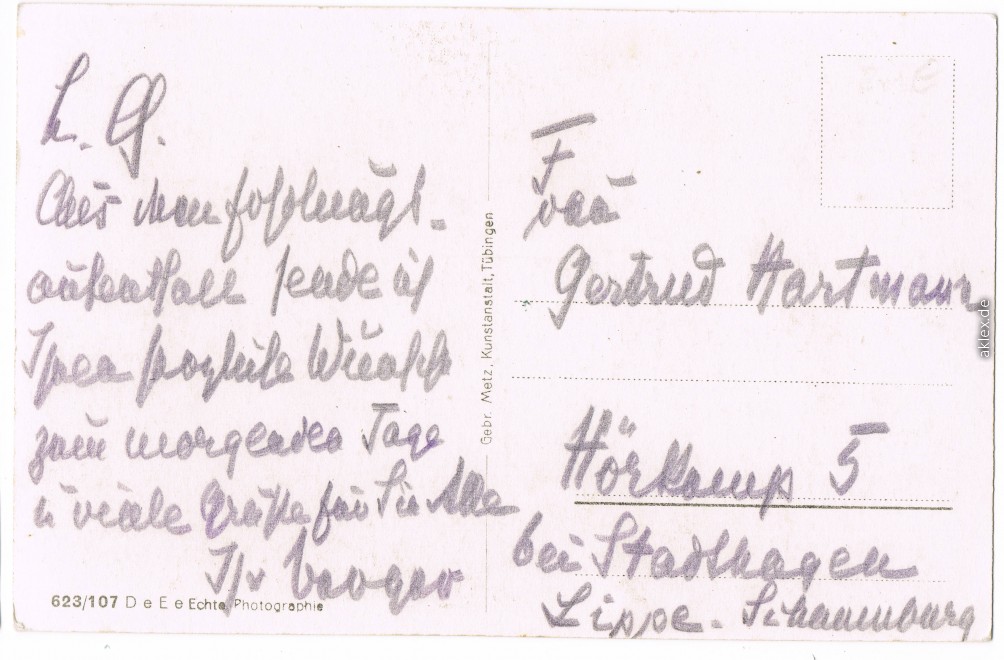 L. G.
Aus dem
aufenthalt sende ich
Ihnen herzliche Wünsche
zum morgenden Tage
u viele Grüße für Sie Alle
Ihr
623/107 D e E e Echte Photographie
Gebr. Metz, Kunstanstalt, Tübingen
Frau
Gertrud Hartmann
Hörkamp 5
bei Stadthagen
Lippe. Schaumburg
aklex.de